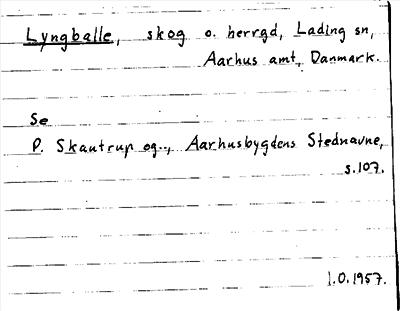 Lyngballe, skog o. herrgd, Lading sn,
Aarhus amt, Danmark.
Se
P. Skautrup og.., Aarhusbygdens Stednavne,
s.107.
1.0.1957.